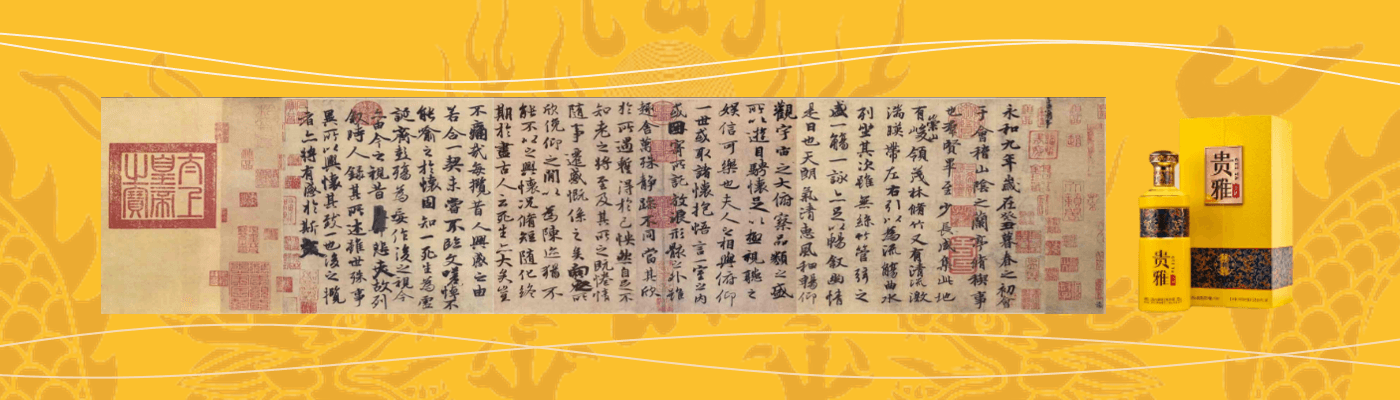 永和九年歲在癸丑暮春之初會
于會稽山陰之蘭亭脩稧事
也群賢畢至少長咸集此地
有崇山峻領茂林脩竹又有清流激
湍暎帶左右引以為流觴曲水
列坐其次雖無絲竹管弦之
盛一觴一詠亦足以暢敘幽情
是日也天朗氣清惠風和暢仰
觀宇宙之大俯察品類之盛
所以遊目騁懷足以極視聽之
娛信可樂也夫人之相與俯仰
一世或取諸懷抱悟言一室之內
或因寄所託放浪形骸之外雖
趣舍萬殊靜躁不同當其欣
於所遇暫得於己怏然自足不
知老之將至及其所之既惓情
隨事遷感慨係之矣向之所
欣俛仰之閒以為陳迹猶不
能不以之興懷況脩短隨化終
期於盡古人云死生亦大矣豈
不痛哉每攬昔人興感之由
若合一契未嘗不臨文嗟悼不
能喻之於懷固知一死生為虛
誕齊彭殤為妄作後之視今
亦由今之視昔悲夫故列
敘時人錄其所述雖世殊事
異所以興懷其致一也後之攬
者亦將有感於斯文
太上
皇帝
之寶
贵雅
贵雅